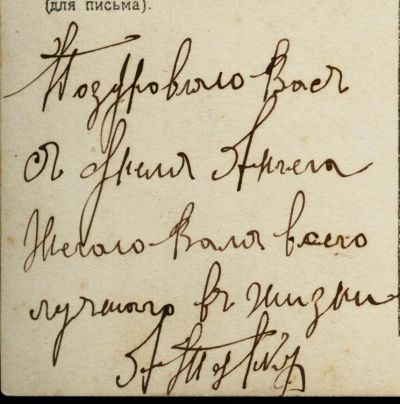 (для письма).
Поздровляю Васъ
съ Днемъ Ангела
Желаю Вамъ всего
лучшаго въ жизни